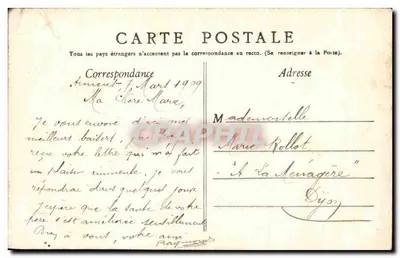 CARTE POSTALE
Tous les pays étrangers n'acceptent pas la correspondance au recto. (Se renseigner à la Poste).
Correspondance
Adresse
Mars 1909
Ma Chère Marie,
Je vous envoie d'ici mes
meilleurs baisers,
reçu votre lettre qui m'a fait
un plaisir immense, je vous
répondrai dans quelques jours
J'espère que la santé de votre
père s'est améliorée sensiblement
Bien à vous, votre ami
Raymond
Mademoiselle
Marie Rollot
"A La Ménagère"
Dijon